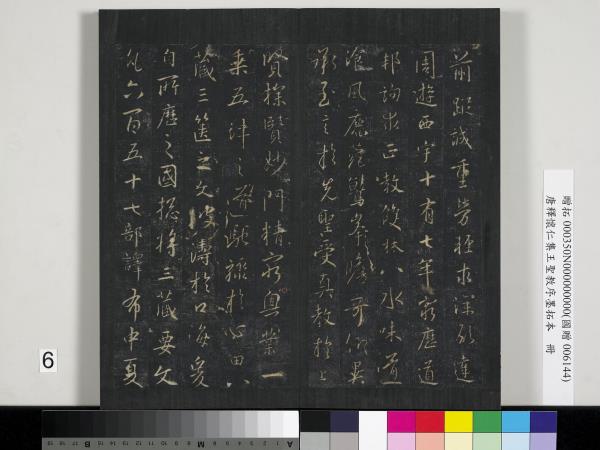 前蹤誠重勞輕求深願達
周遊西宇十有七年窮歷道
邦詢求正教雙林八水味道
飡風鹿菀鷲峯瞻奇仰異
承至言於先聖受真教於上
賢探賾妙門精窮奧業一
乘五律之道馳驟於心田八
藏三篋之文波濤於口海爰
自所歷之國總將三藏要文
凡六百五十七部譯布中夏
贈拓 000350N000000000(國贈 006144)
唐釋懷仁集王聖教序墨拓本 冊
6
A 1 2 3 4 5 6 M 8 9 10 11 12 13 14 15 B 17 18 19